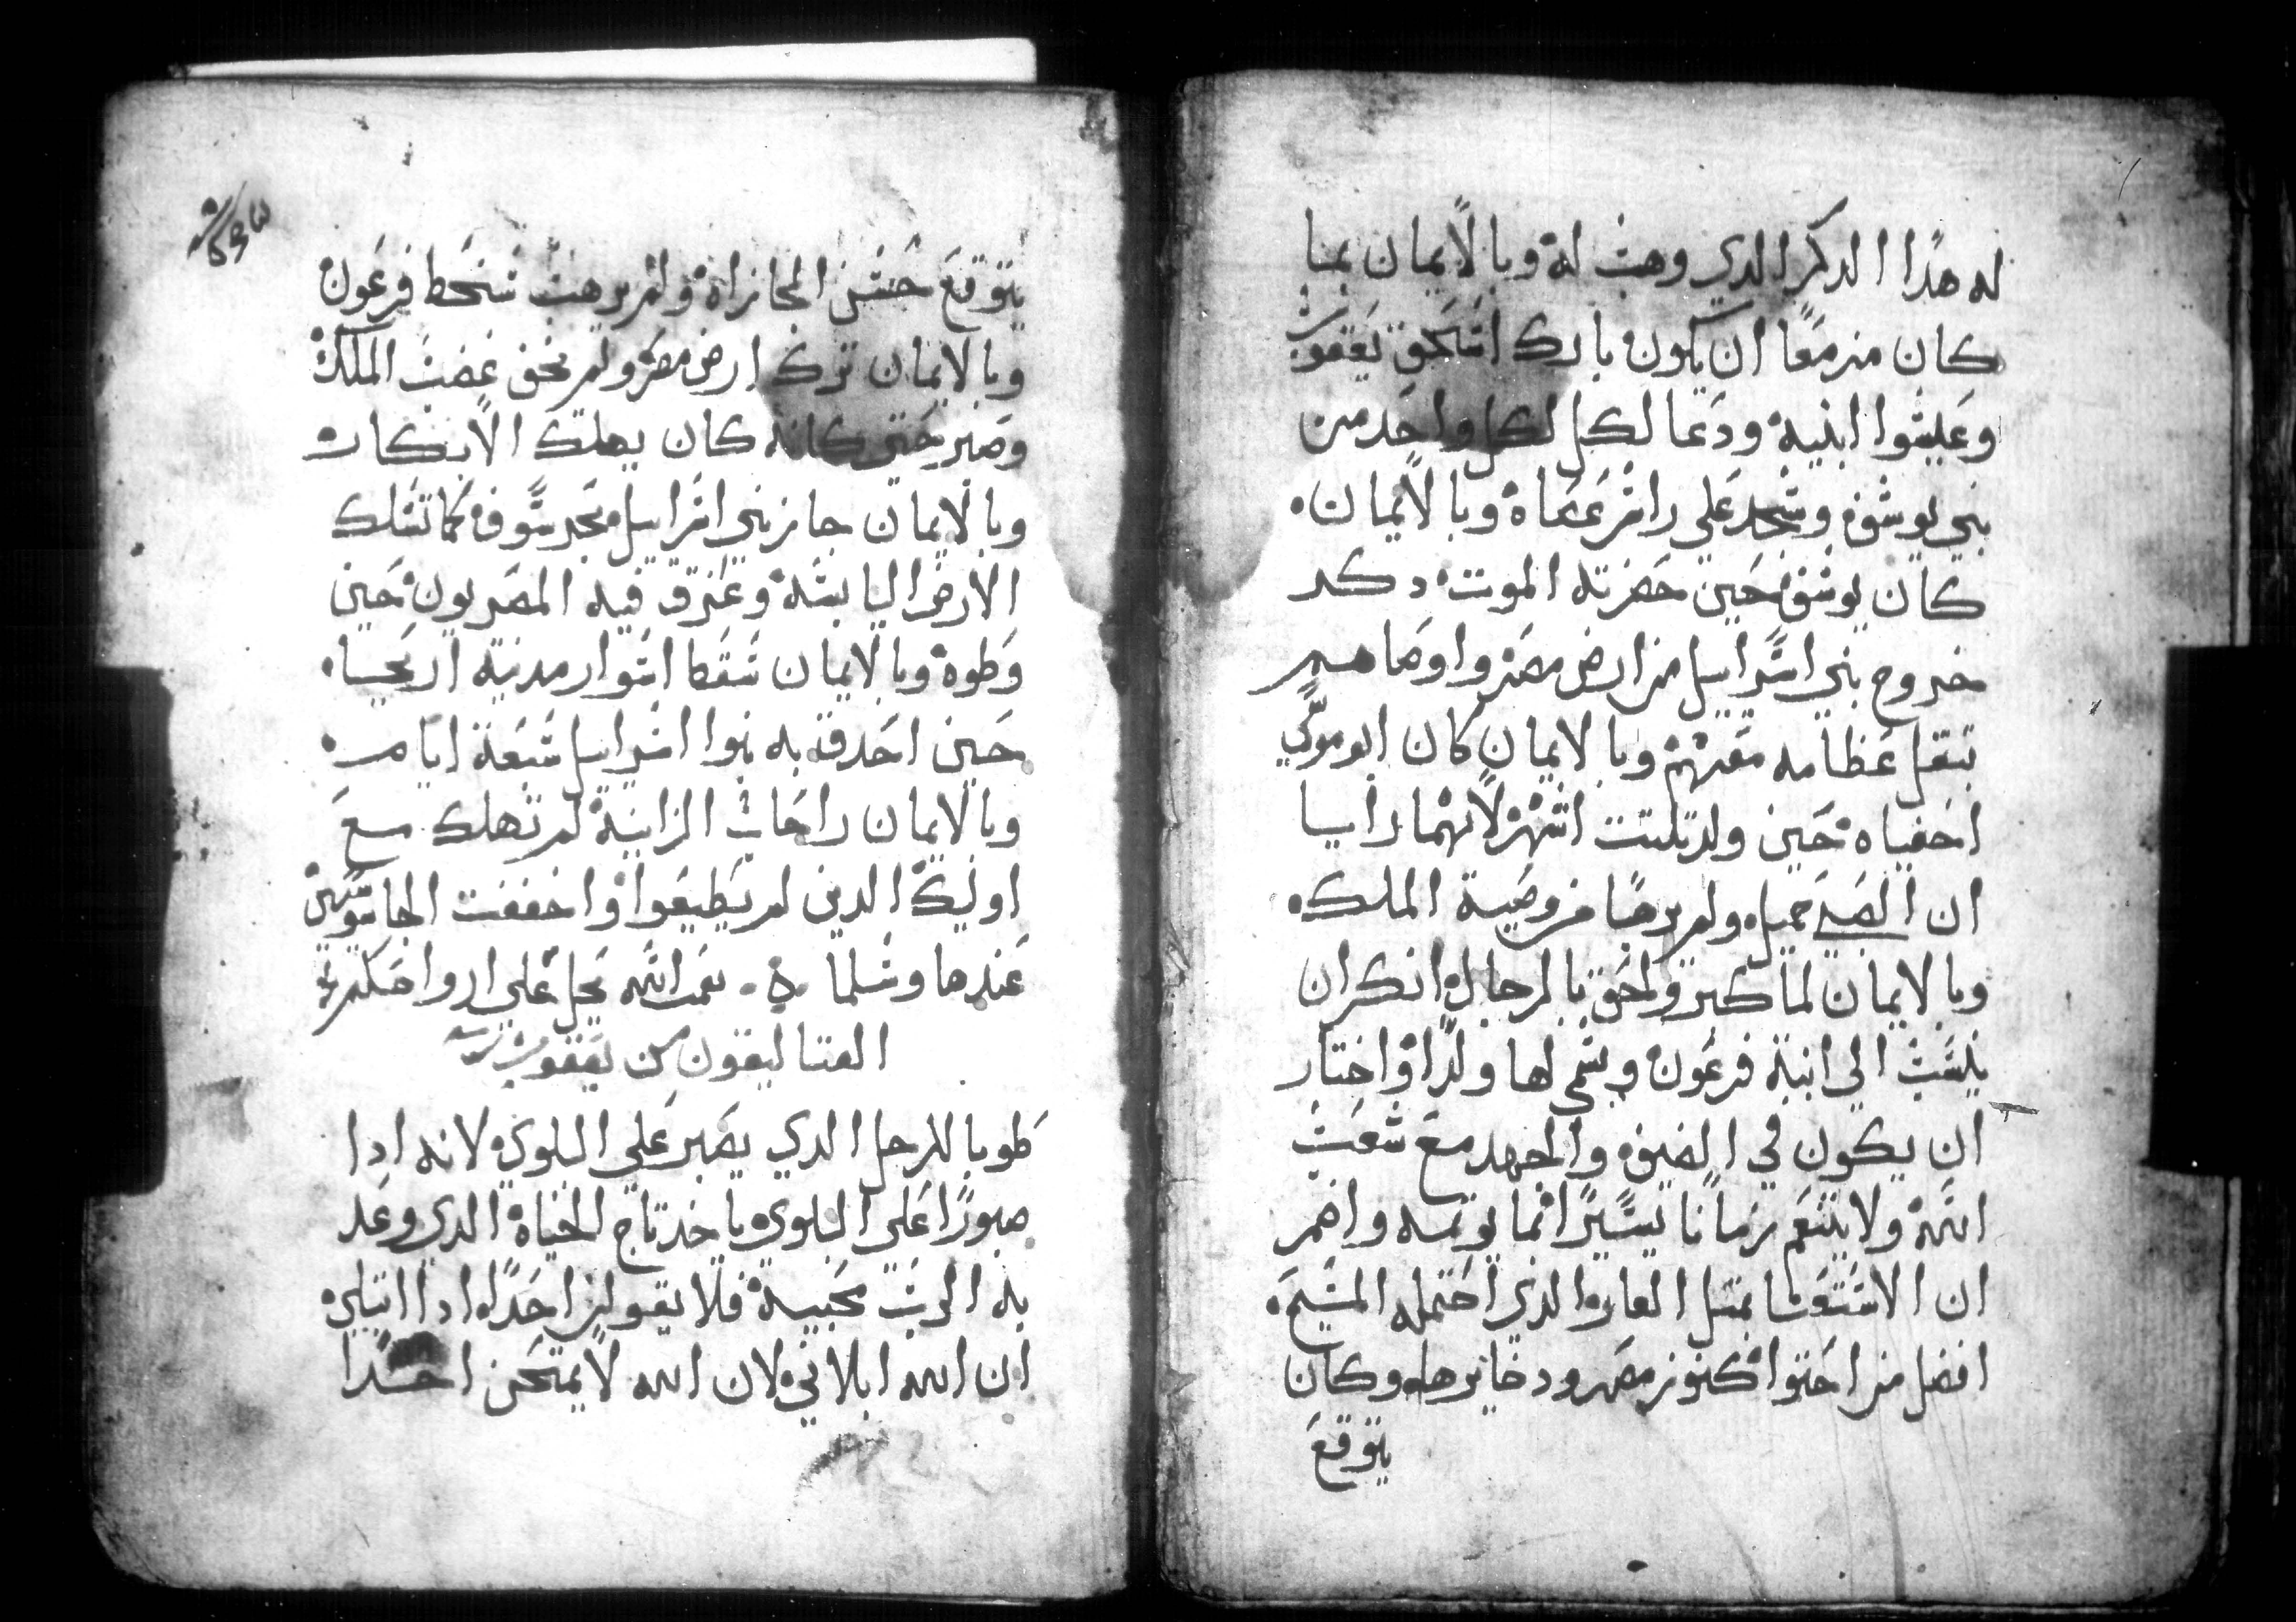 له هدا الدكر الدي وهب له وبالايمان بما
كان مزمعًا ان يكون بارك اسحق يعقوب
وعليسوا ابنيه ودعا لكل لكل واحد من
بني يوسف وسجد علي راس عصاه وبالايمان
كان يوسف حين حضرته الموت دكر
خروج بني اسراييل من ارض مصر واوصاهم
بنقل عظامه معهم وبالايمان كان ابو موسي
اخفياه حين ولد تلتت اشهر لانهما رايا
ان الصبي جميل ولم يرهبا من وصية الملك
وبالايمان لما كبر ولحق بالرجال انكر ان
ينسب الي ابنة فرعون ويسمي لها ولدًا واختار
ان يكون في الضيق والجهد مع شعب
الله ولا يتنعم زمانا يسيرًا انما يوتمه واضمر
ان الاستغنا بمتل العار الدي احتمله المسيح
افضل من احتوا كنوز مصر ودخايرها وكان
يتوقع
يتوقع حسن المجازاة ولم يرهب سخط فرعون
وبالايمان ترك ارض مصر ولم يخف غضب الملك
وصبر حتى كانه كان يهلك الابكار
وبالايمان جاز بني اسراييل بحر سوف كما تسلك
الارض اليابسة وغرق فيه المصريون حين
وطوه وبالايمان سقطا اسوار مدينة اريحيا
حين احدقة به بنوا اسراييل سبعة ايام
وبالايمان راحاب الزانية لم تهلك مع
اوليك الدين لم يطيعوا واخففت الجاسوسين
عندها وسلما ه نعمت الله تحل علي ارواحكم
القتاليقون من يعقوب
طوبا للرجل الدي يصبر علي البلوي لانه ادا
صبورًا علي البلوي ياخد تاج الحياة الدي وعد
به الرب محبيه فلا يقولن احدًا ادا ابتلي
ان الله ابلاني لان الله لا يمتحن احدًا